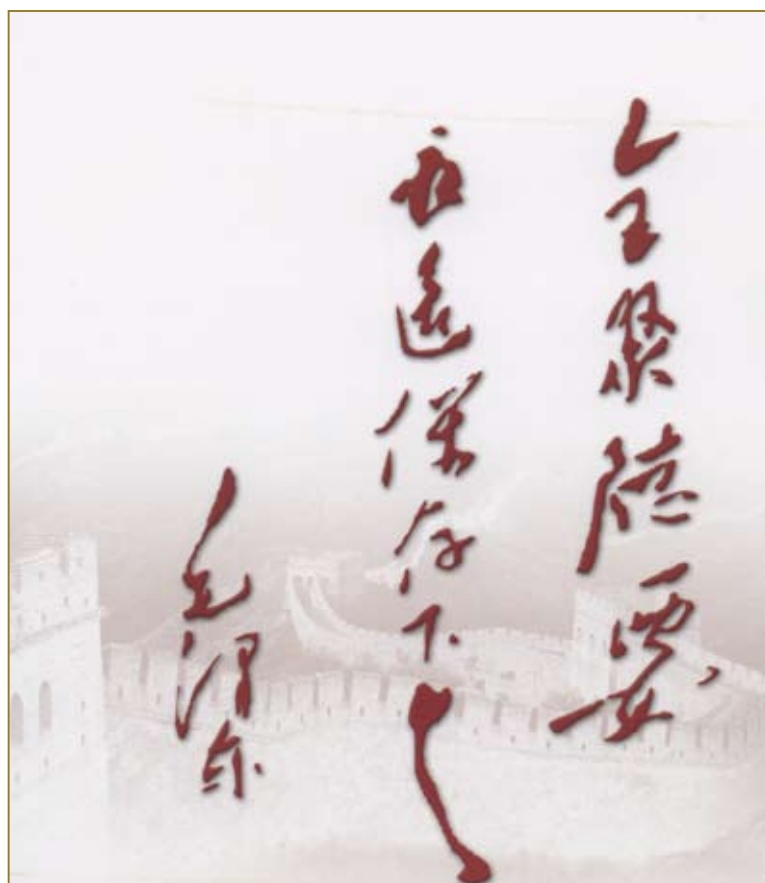 全聚德要
永遠保存下去
毛泽东